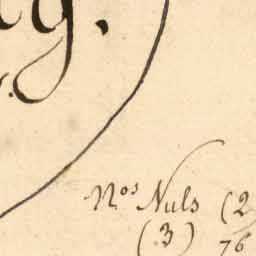 g.
N.os Nuls (2
(3) 76